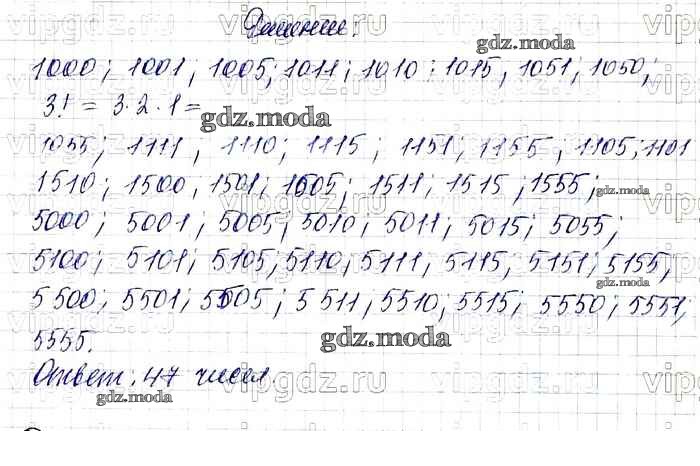 Решение.
1000; 1001; 1005; 1011; 1010; 1015; 1051; 1050;
3! = 3·2·1=
1055; 1111; 1110; 1115; 1151; 1155; 1105; 1101
1510; 1500, 1501; 1505; 1511; 1515; 1555;
5000; 5001; 5005; 5010; 5011; 5015; 5055;
5100; 5101; 5105; 5110; 5111; 5115; 5151; 5155,
5500; 5501; 5505; 5511, 5510, 5515; 5550; 5551,
5555.
Ответ. 47 чисел.
gdz.moda
gdz.moda
gdz.moda
gdz.moda
gdz.moda
gdz.moda
vipgdz.ru
vipgdz.ru
vipgdz.ru
vipgdz.ru